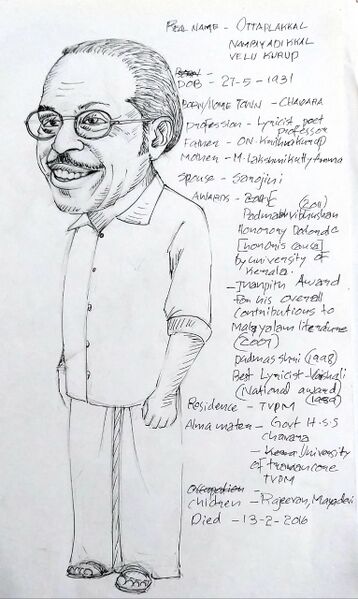 REAL NAME - OTTAPLAKKAL
NAMBIYADIKKAL
VELU KURUP
DOB - 27-5-1931
BORN/HOME TOWN - CHAVARA
Profession - Lyricist, poet
professor
Father - ON Krishnakurup
Mother - M. Lakshmikutty Amma
Spouse - Sarojini
AWARDS - (2011)
Padmabhvibhushan
Honorary Doctorate
[honoris causa]
by university of
Kerala.
- Jnanpith Award
For his overall
contributions to
Malayalam literature
(2007)
padmasshri (1998)
Best Lyricist - Vaishali
(National award)
(1989)
Residence - TVPM
Alma mater - Govt H.S.S
Chavara
- University
of Travancore
TVPM
Children - Rajeevan, Mayadevi
Died - 13-2-2016